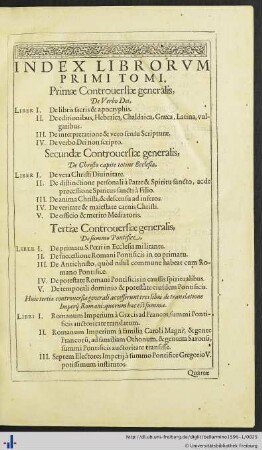 INDEX LIBRORVM
PRIMI TOMI,
Primæ Controuersiæ generalis,
De Verbo Dei,
LIBER I. De libris sacris & apocryphis.
II. De editionibus, Hebraica, Chaldaica, Græca, Latina, vul-
garibus.
III. De interpretatione & vero sensu Scripturæ.
IV. De verbo Dei non scripto.
Secundæ Controuersiæ generalis,
De Christo capite totius Ecclesiæ.
LIBER I. De vera Christi Diuinitate.
II. De distinctione personali à Patre & Spiritu sancto, ac de
processione Spiritus sancti à Filio.
III. De anima Christi, & descensu ad inferos.
IV. De veritate & maiestate carnis Christi.
V. De officio & merito Mediatoris.
Tertiæ Controuersiæ generalis,
De summo Pontifice,
LIBER I. De primatu S. Petri in Ecclesia militante.
II. De successione Romani Pontificis in eo primatu.
III. De Antichristo, quod nihil commune habeat cum Ro-
mano Pontifice.
IV. De potestate Romani Pontificis in caussis spiritualibus.
V. De temporali dominio & potestate eiusdem Pontificis.
Huic tertiæ controuersiæ generali accesserunt tres libri de translatione
Imperij Romani, quorum hæc est summa.
LIBER I. Romanum Imperium à Græcis ad Francos summi Ponti-
ficis auctoritate translatum.
II. Romanum Imperium à familia Caroli Magni, & gente
Francorum, ad familiam Othonum, & gentem Saxonum,
summi Pontificis auctoritate transisse.
III. Septem Electores Imperij à summo Pontifice Gregorio V.
potissimum institutos.
Quartæ
© Universitätsbibliothek Freiburg